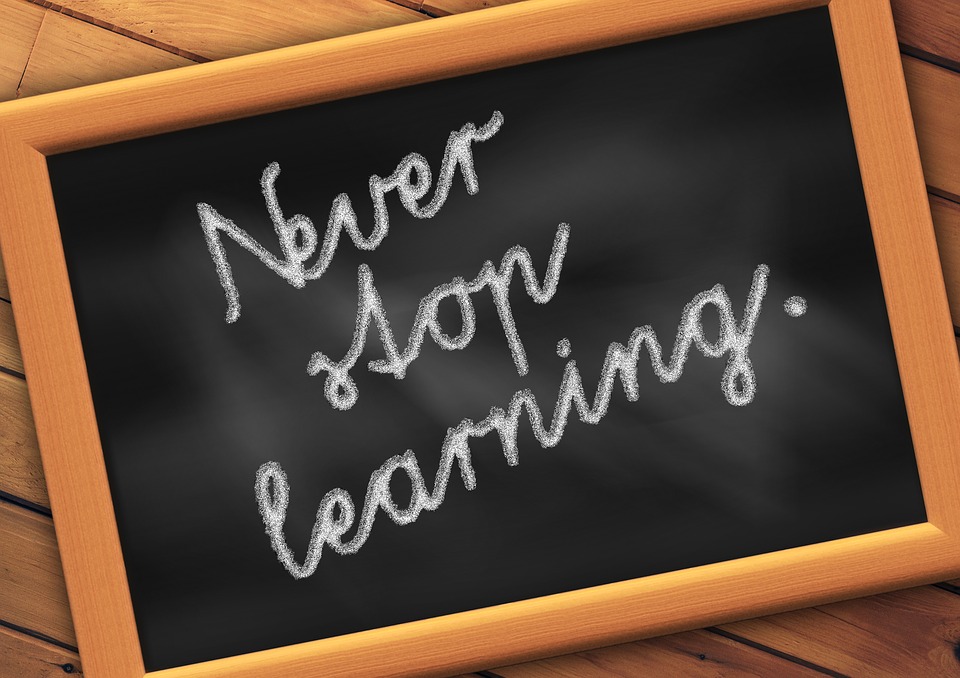 Never
stop
learning.